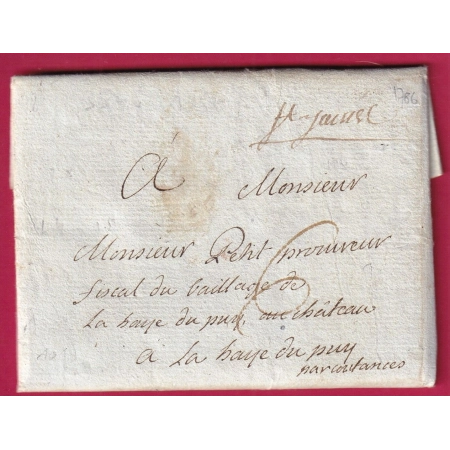 1786
St James
A Monsieur
Monsieur Petit procureur
fiscal du baillage de
La haye du puy, au château
a La haye du puy
par coutances
6